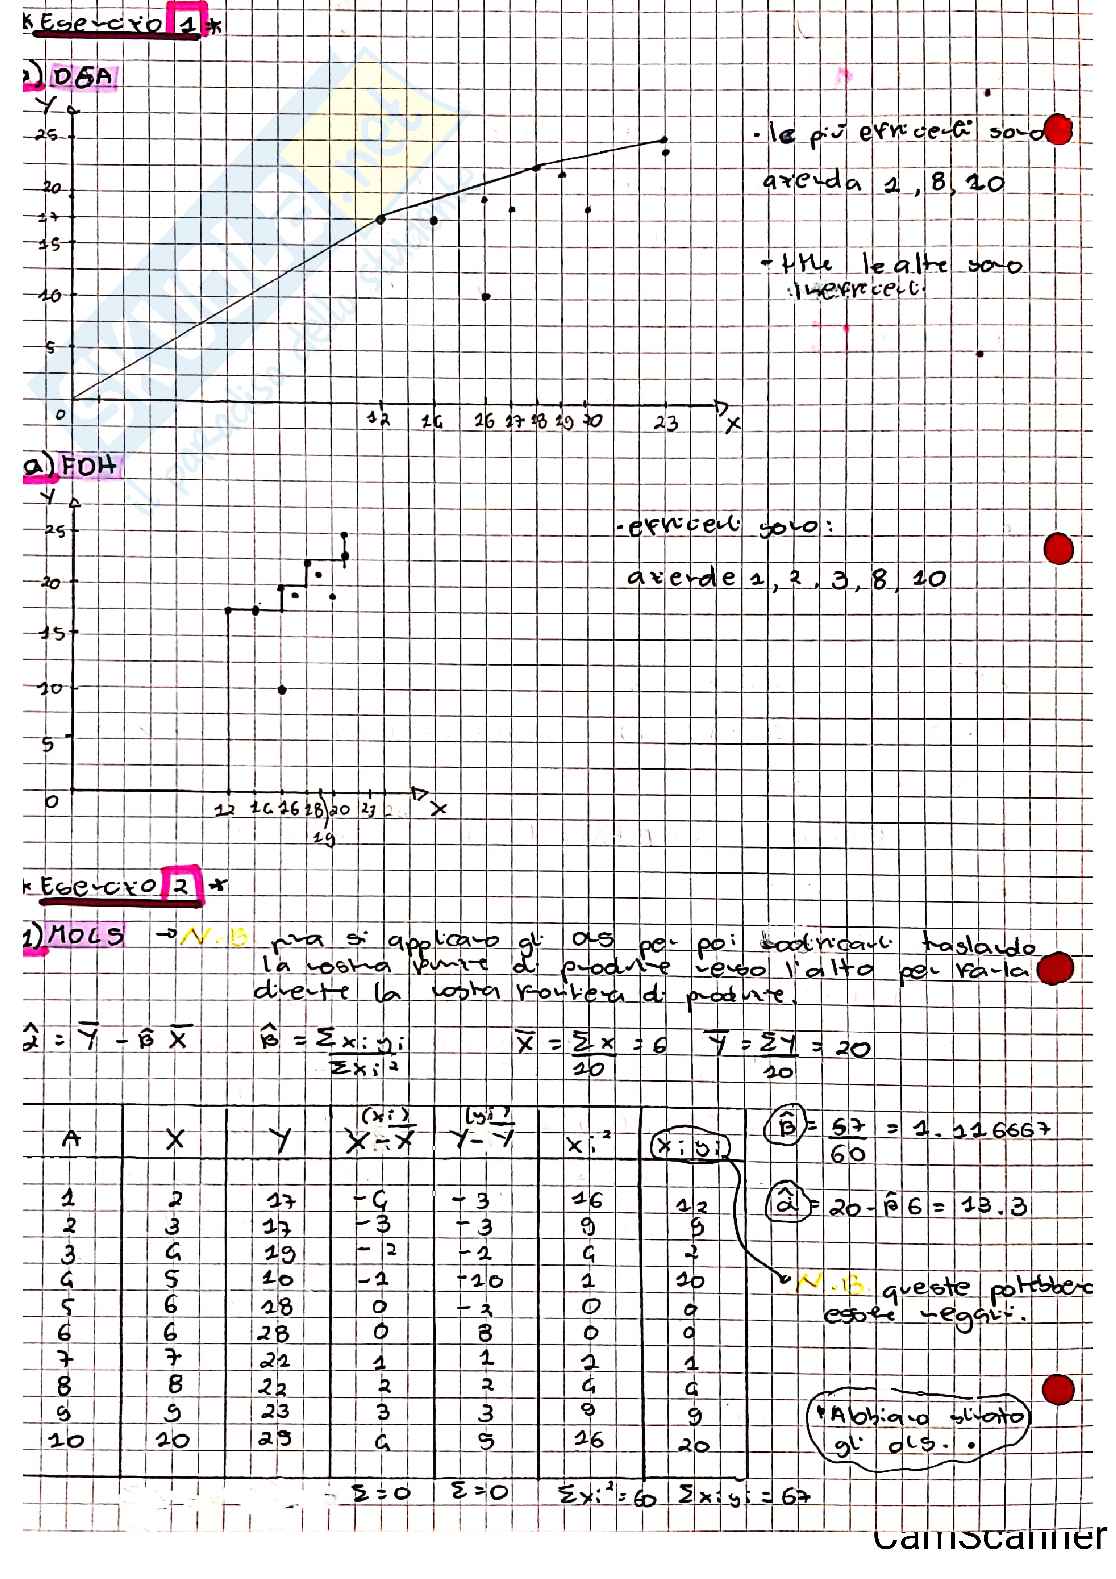 * Esercizio 1 *
a) DEA
Y
25
20
17
15
10
5
0
12 14 16 17 18 19 20 23 X
- le più efficienti sono
azienda 1, 8, 10
- tutte le altre sono
inefficienti
a) FDH
Y
25
20
15
10
5
0
12 14 16 18 20 23 X
19
- efficienti sono:
aziende 1, 2, 3, 8, 10
* Esercizio 2 *
1) MOLS → N.B prima si applicano gli OLS per poi modificarli traslando
la nostra funzione di produzione verso l'alto per farla
divente la nostra frontiera di produzione.
α̂ = Y̅ - β̂ X̅ β̂ = Σxiyi / Σxi² X̅ = Σx / 10 = 6 Y̅ = ΣY / 10 = 20
A X Y (xi) X - X̅ (yi) Y - Y̅ xi² xiyi
1 2 17 -4 -3 16 12
2 3 17 -3 -3 9 9
3 4 19 -2 -1 4 2
4 5 10 -1 -10 1 10
5 6 18 0 -2 0 0
6 6 28 0 8 0 0
7 7 21 1 1 1 1
8 8 22 2 2 4 4
9 9 23 3 3 9 9
10 10 25 4 5 16 20
Σ=0 Σ=0 Σxi²=60 Σxiyi=67
β̂ = 67 / 60 = 1.116667
α̂ = 20 - β̂ 6 = 13.3
N.B. queste potrebbero
essere negativi.
* Abbiamo stimato
gli OLS.
CamScanner
SKUOLA.net
il paradiso dello studente